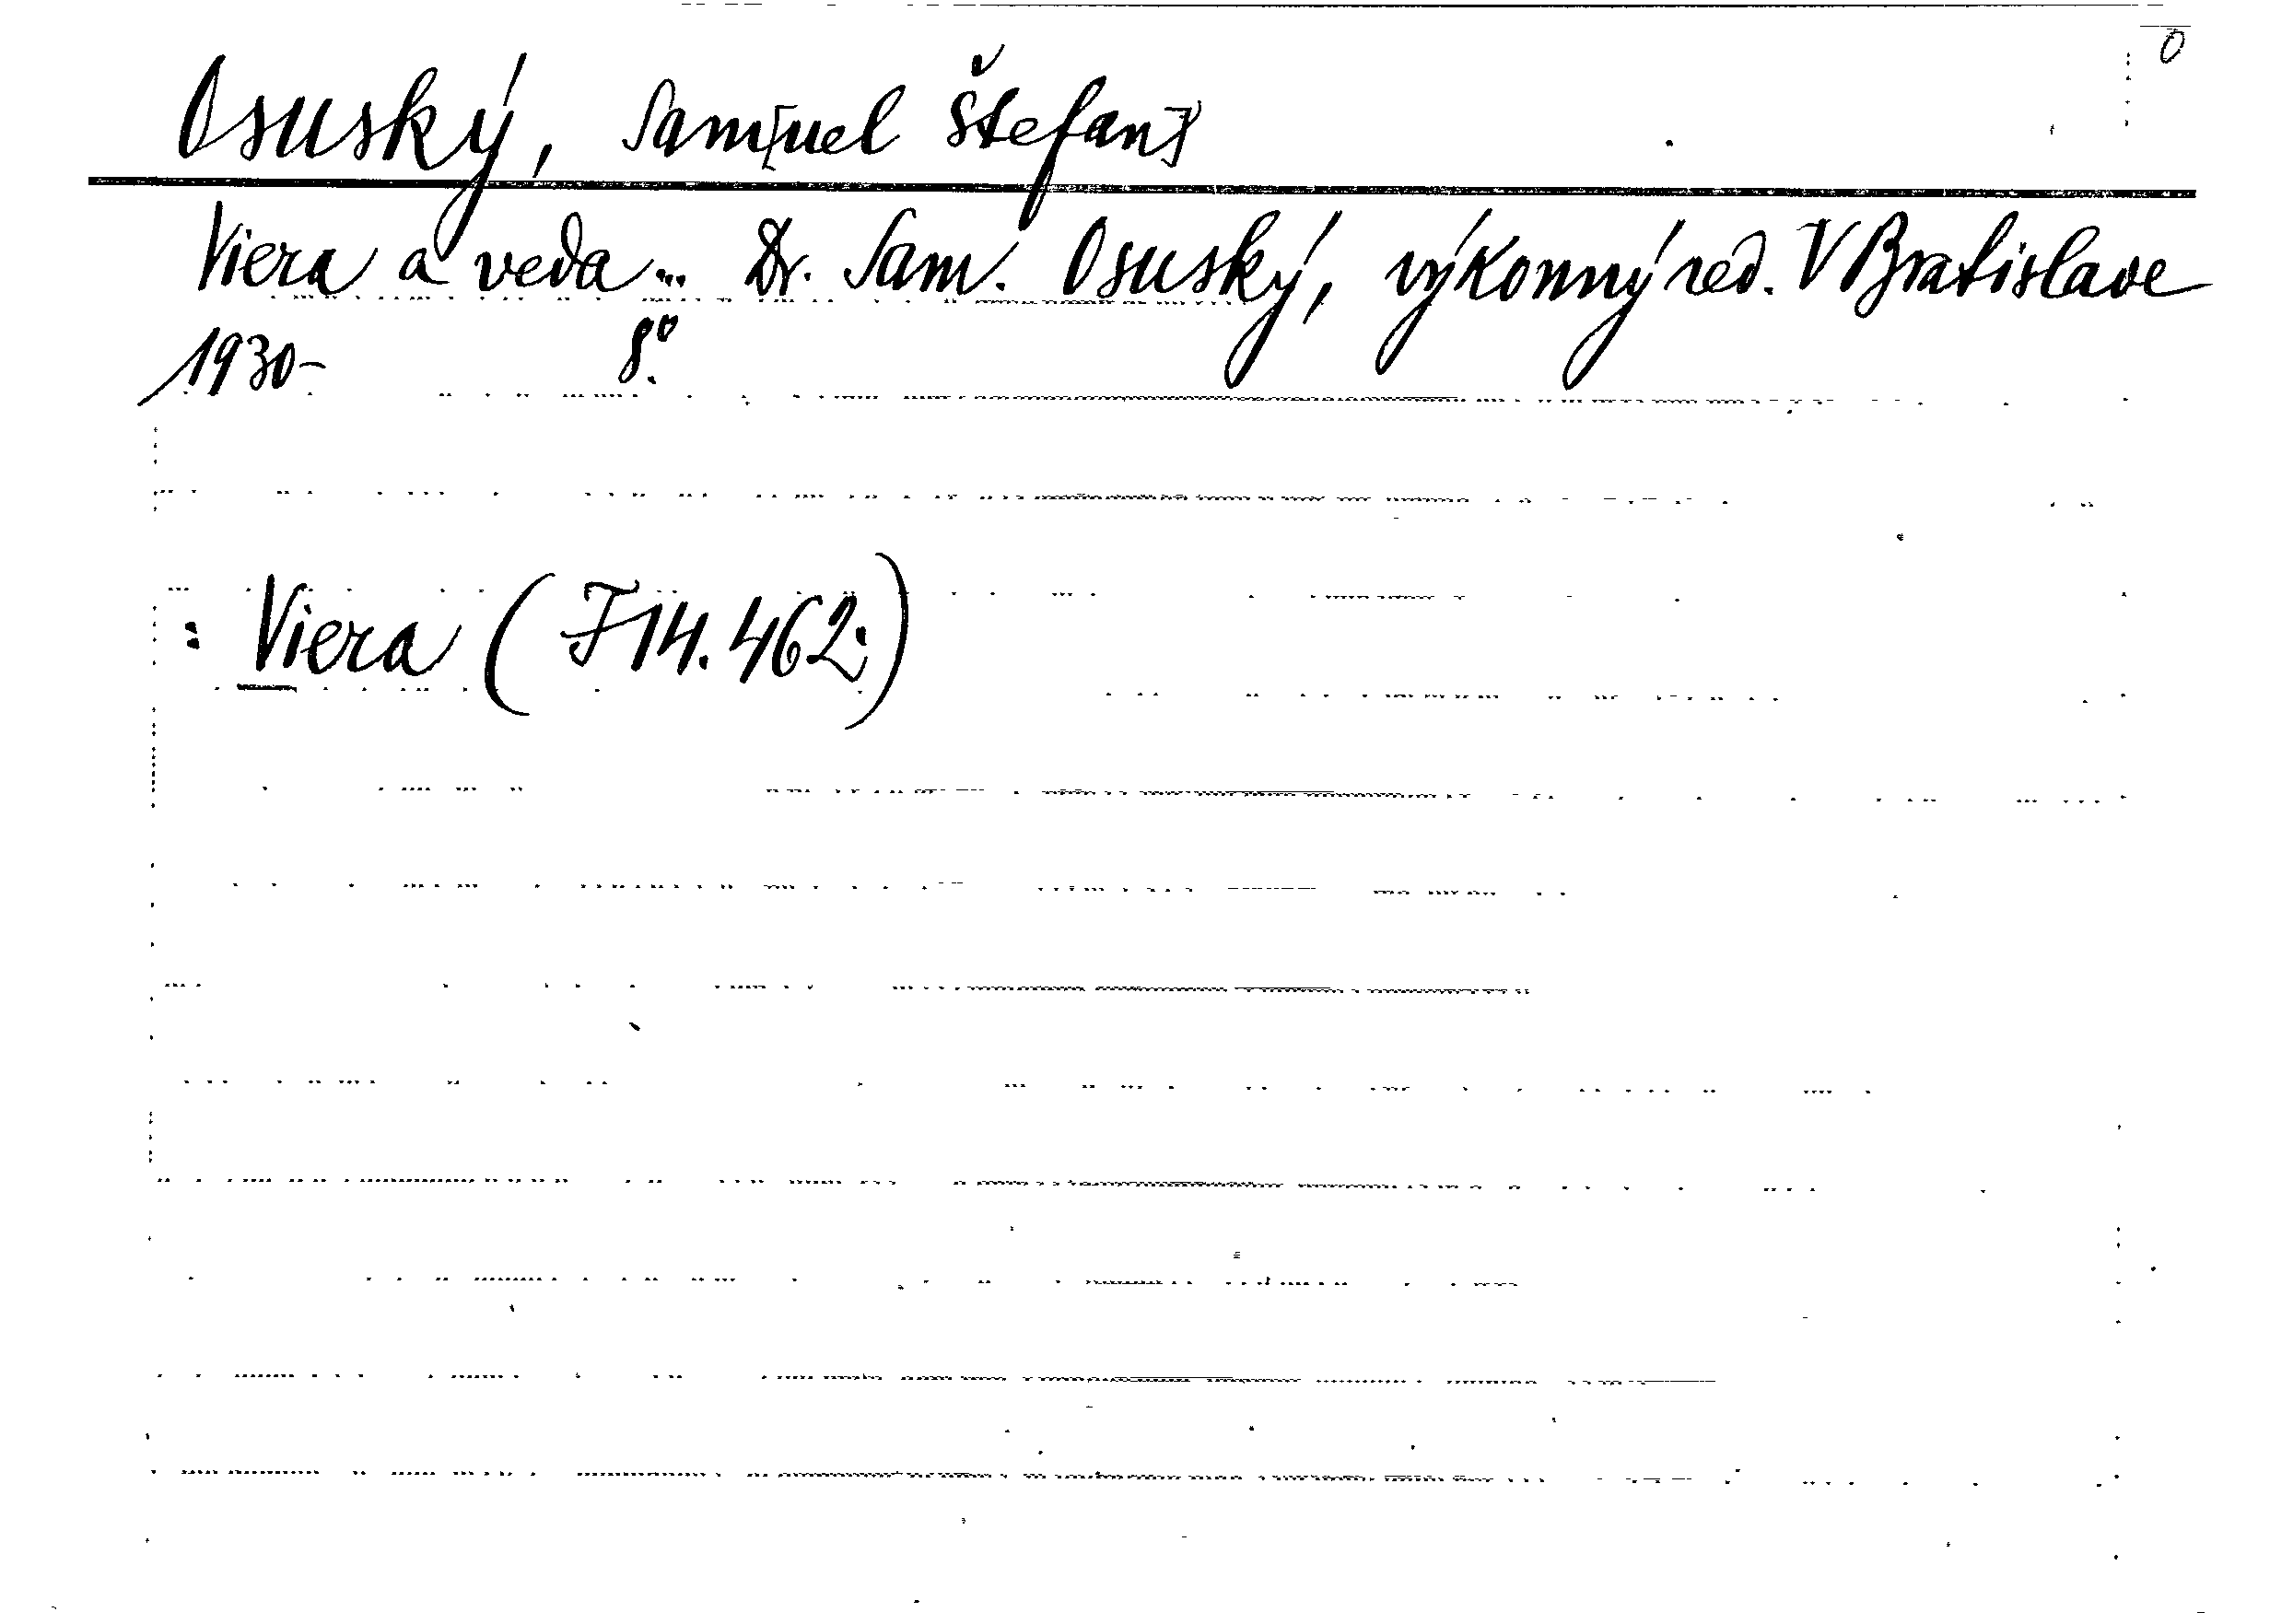 O
Osuský, Sam[uel Štefan]
Viera a veda... Dr. Sam. Osuský, výkonný red. V Bratislave
1930- 8°.
: Viera (J 14.462:)